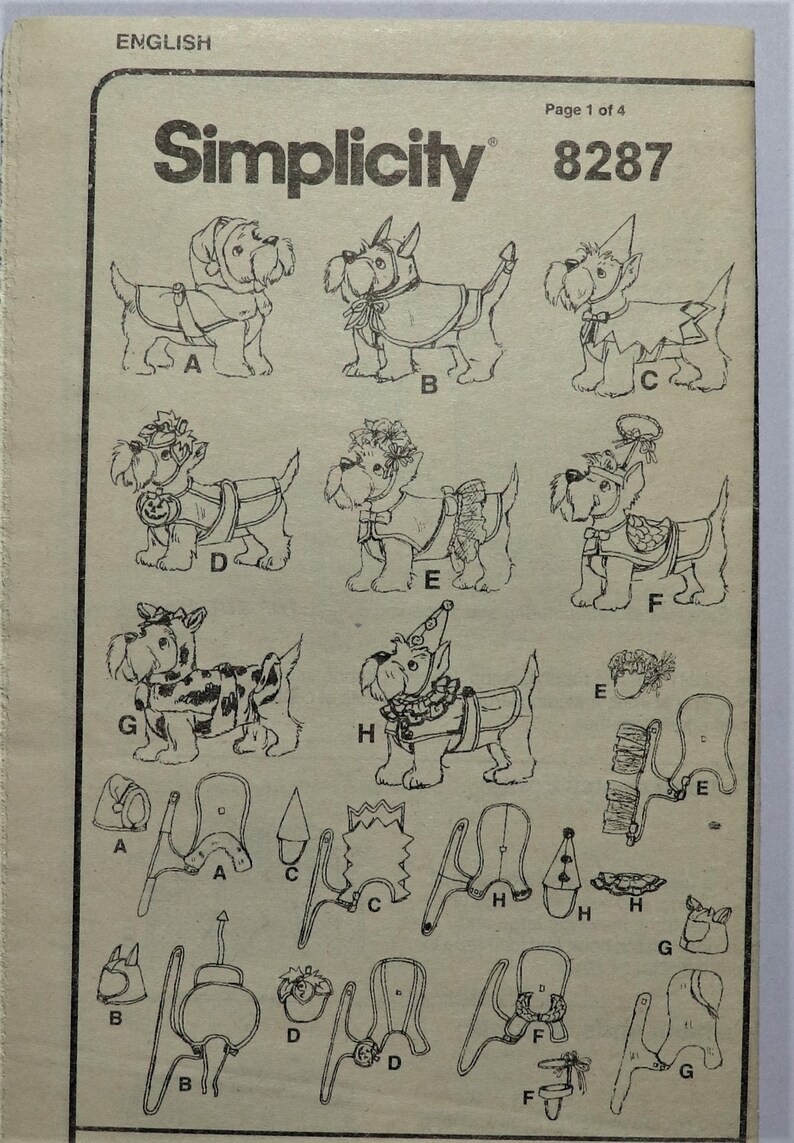 ENGLISH
Page 1 of 4
Simplicity® 8287
A
B
C
D
E
F
G
H
E
E
A
A
C
C
H
H
H
G
B
B
D
D
F
F
G